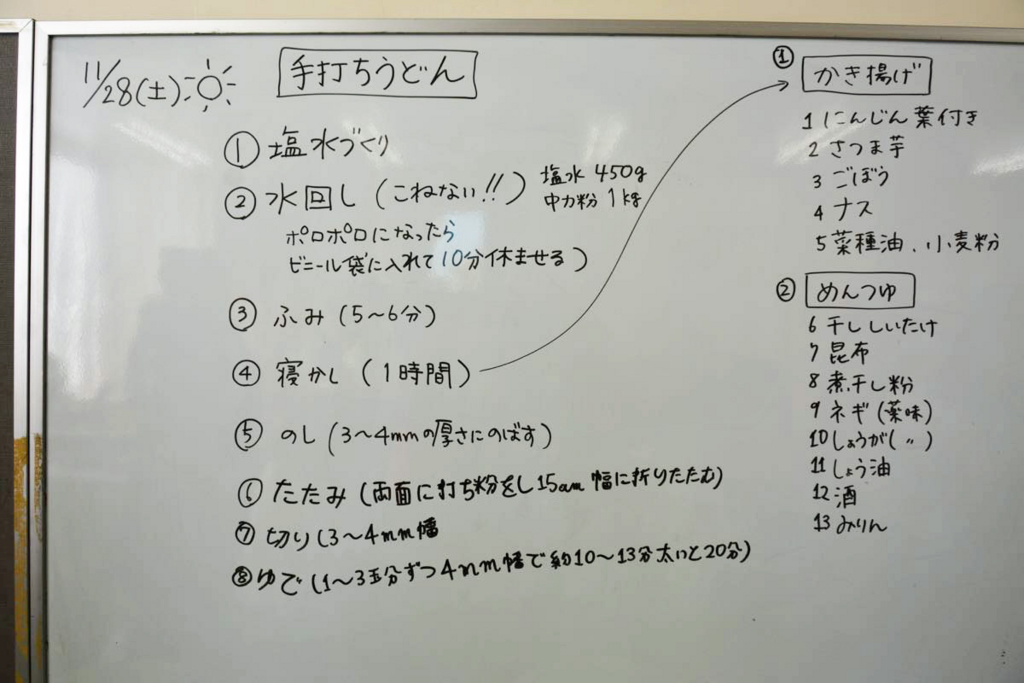 11/28(土)
手打ちうどん
① 塩水づくり
② 水回し (こねない!!) 塩水 450g
中力粉 1kg
ポロポロになったら
ビニール袋に入れて10分休ませる)
③ ふみ (5〜6分)
④ 寝かし (1時間)
⑤ のし (3〜4mmの厚さにのばす)
⑥ たたみ (両面に打ち粉をし15cm幅に折りたたむ)
⑦ 切り (3〜4mm幅
⑧ ゆで (1〜3玉分ずつ4mm幅で約10〜13分太いと20分)
① かき揚げ
1 にんじん葉付き
2 さつま芋
3 ごぼう
4 ナス
5 菜種油、小麦粉
② めんつゆ
6 干ししいたけ
7 昆布
8 煮干し粉
9 ネギ(薬味)
10 しょうが(〃)
11 しょう油
12 酒
13 みりん